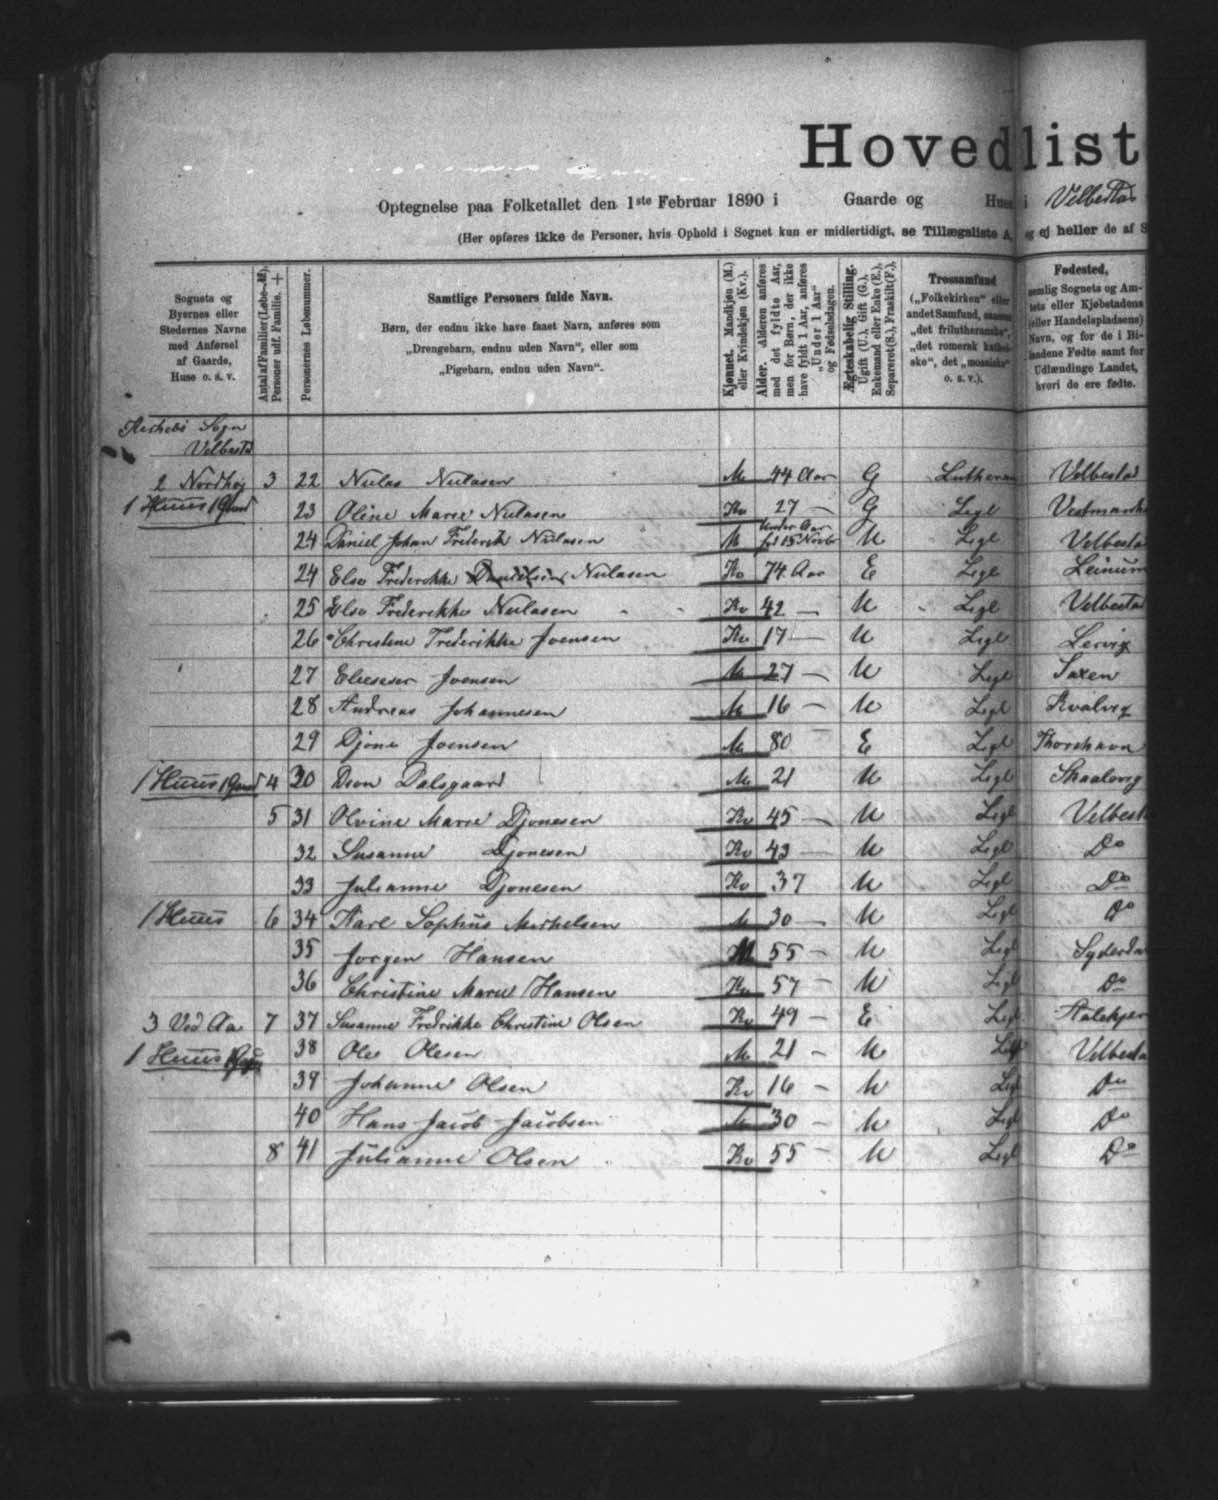 Hovedlist
Optegnelse paa Folketallet den 1ste Februar 1890 i Gaarde og Huse i Velbestad
(Her opføres ikke de Personer, hvis Ophold i Sognet kun er midlertidigt, se Tillægsliste A, og ej heller de af S
Sognets og Byernes eller Stedernes Navne med Anførsel af Gaarde, Huse o. s. v.
Antal af Familier (Løbe-Nr.), Personer udf. Familie. +
Personernes Løbenummer.
Samtlige Personers fulde Navn.
Børn, der endnu ikke have faaet Navn, anføres som
„Drengebarn, endnu uden Navn“, eller som
„Pigebarn, endnu uden Navn“.
Kjønnet. Mandkjøn (M.) eller Kvindekjøn (Kv.).
Alder. Alderen anføres med det fyldte Aar, men for Børn, der ikke have fyldt 1 Aar, anføres „Under 1 Aar“ og Fødselsdagen.
Ægteskabelig Stilling. Ugift (U.), Gift (G.), Enkemand eller Enke (E.), Separeret (S.), Fraskilt (F.).
Trossamfund („Folkekirken“ eller andet Samfund, saasom „det frilutheranske“, „det romersk kathol-ske“, det „mosaiske“ o. s. v.).
Fødested, nemlig Sognets og Am-tets eller Kjøbstadens (eller Handelspladsens) Navn, og for de i Bi-landene Fødte samt for Udlændinge Landet, hvori de ere fødte.
Sogn
Velbestad
2 Nordhøj 3 22 Niclas Niclasen M 44 Aar G Lutheran Velbestad
1 Huus 1 Grund 23 Oline Marie Niclasen Kv 27 – G Ligl
24 Daniel Johan Frederik Niclasen M Under Aar fød 15 Novbr U Ligl Velbestad
24 Elsa Frederikke Danielsen Niclasen Kv 74 Aar E Ligl Leinum
25 Elsa Frederikke Niclasen Kv 42 – U Ligl Velbestad
26 Christine Frederikke Joensen Kv 17 – U Ligl Lervig
27 Elieser Joensen M 27 – U Ligl Saxen
28 Andreas Johannesen M 16 – U Ligl Kvalvig
29 Djone Joensen M 80 – E Ligl Thorshavn
1 Huus 1 Grund 4 30 Dalsgaard M 21 U Ligl Skaalevig
5 31 Olvine Marie Djonesen Kv 45 – U Ligl Velbest
32 Susanne Djonesen Kv 43 – U Ligl Do
33 Julianne Djonesen Kv 37 U Ligl Do
1 Huus 6 34 Karl Sophus Mikkelsen M 30 – U Ligl Do
35 Jørgen Hansen M 55 – U Ligl Syderda
36 Christine Marie Hansen Kv 57 – U Ligl Do
3 Ved Aa 7 37 Susanne Fredrikke Christine Olsen Kv 49 – E Ligl
1 Huus 38 Ole Olesen M 21 – U Ligl Velbesta
39 Johanne Olsen Kv 16 – U Ligl Do
40 Hans Jacob Jacobsen M 30 – U Ligl Do
8 41 Julianne Olsen Kv 55 – U Ligl Do